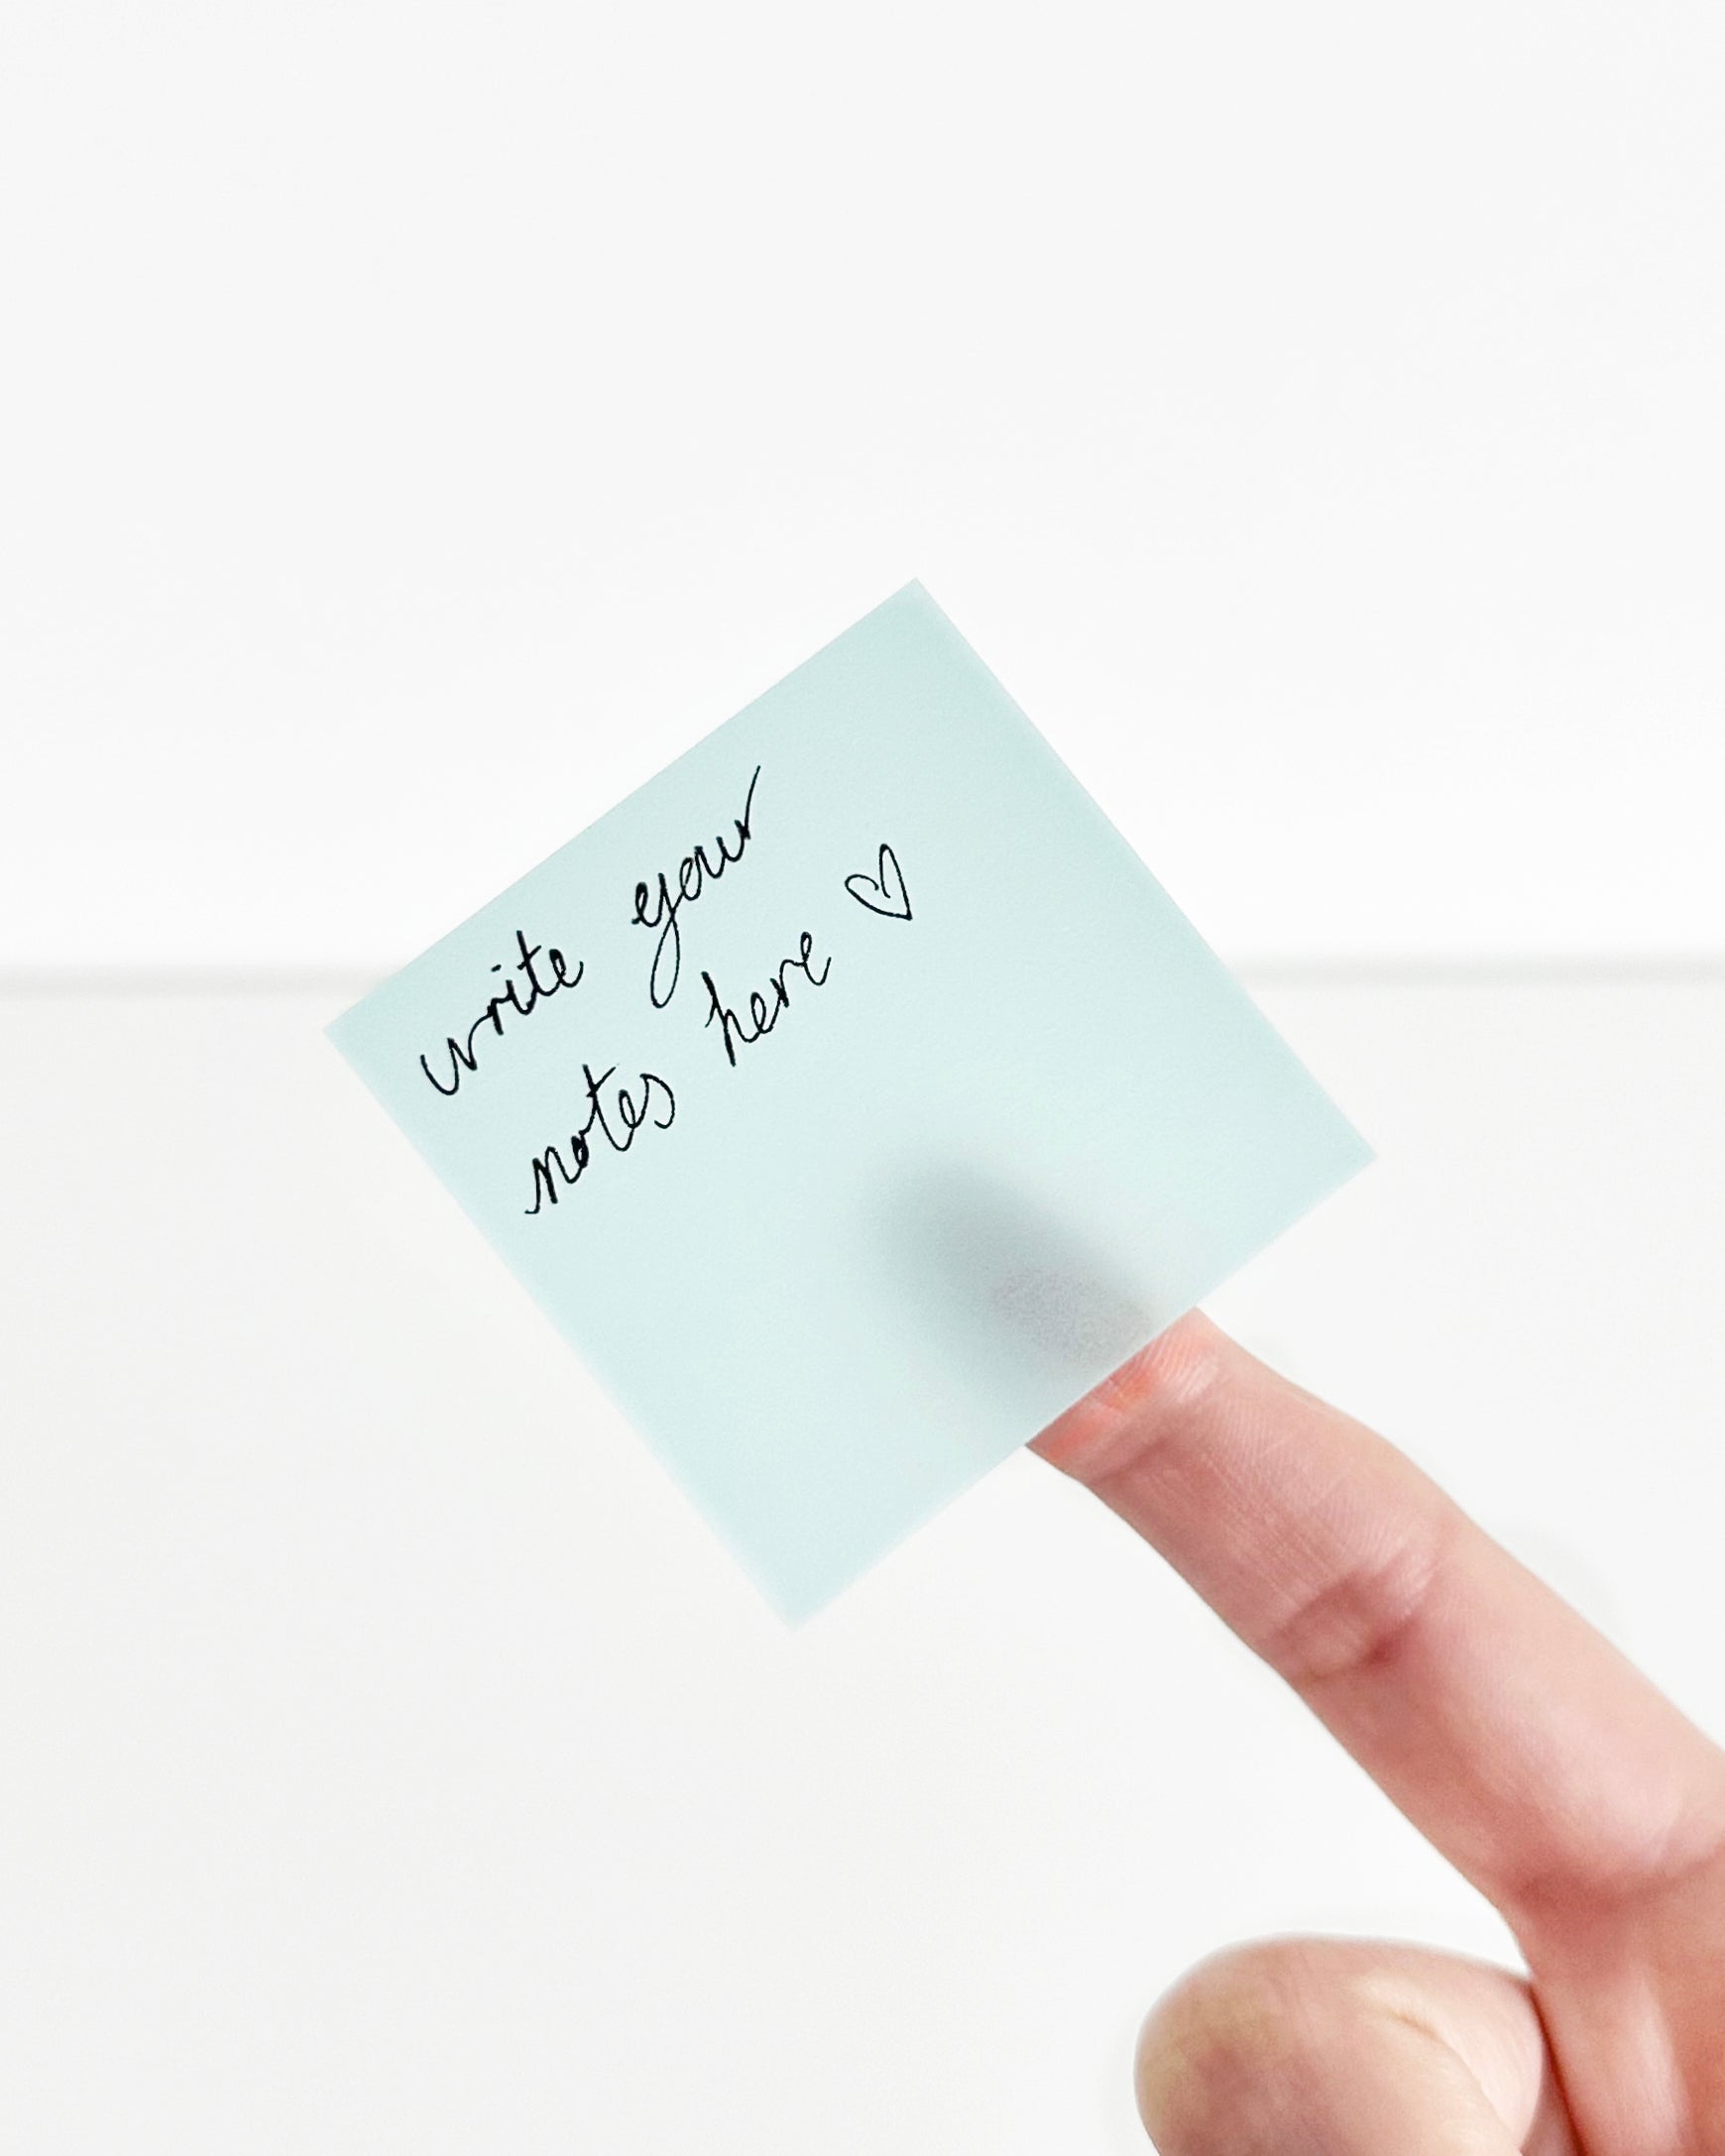 write your
notes here ♡